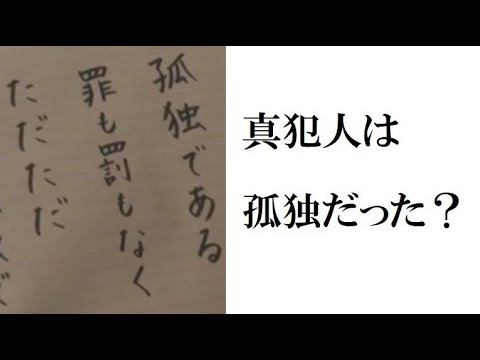 孤独である
罪も罰もなく
ただただ
真犯人は
孤独だった?